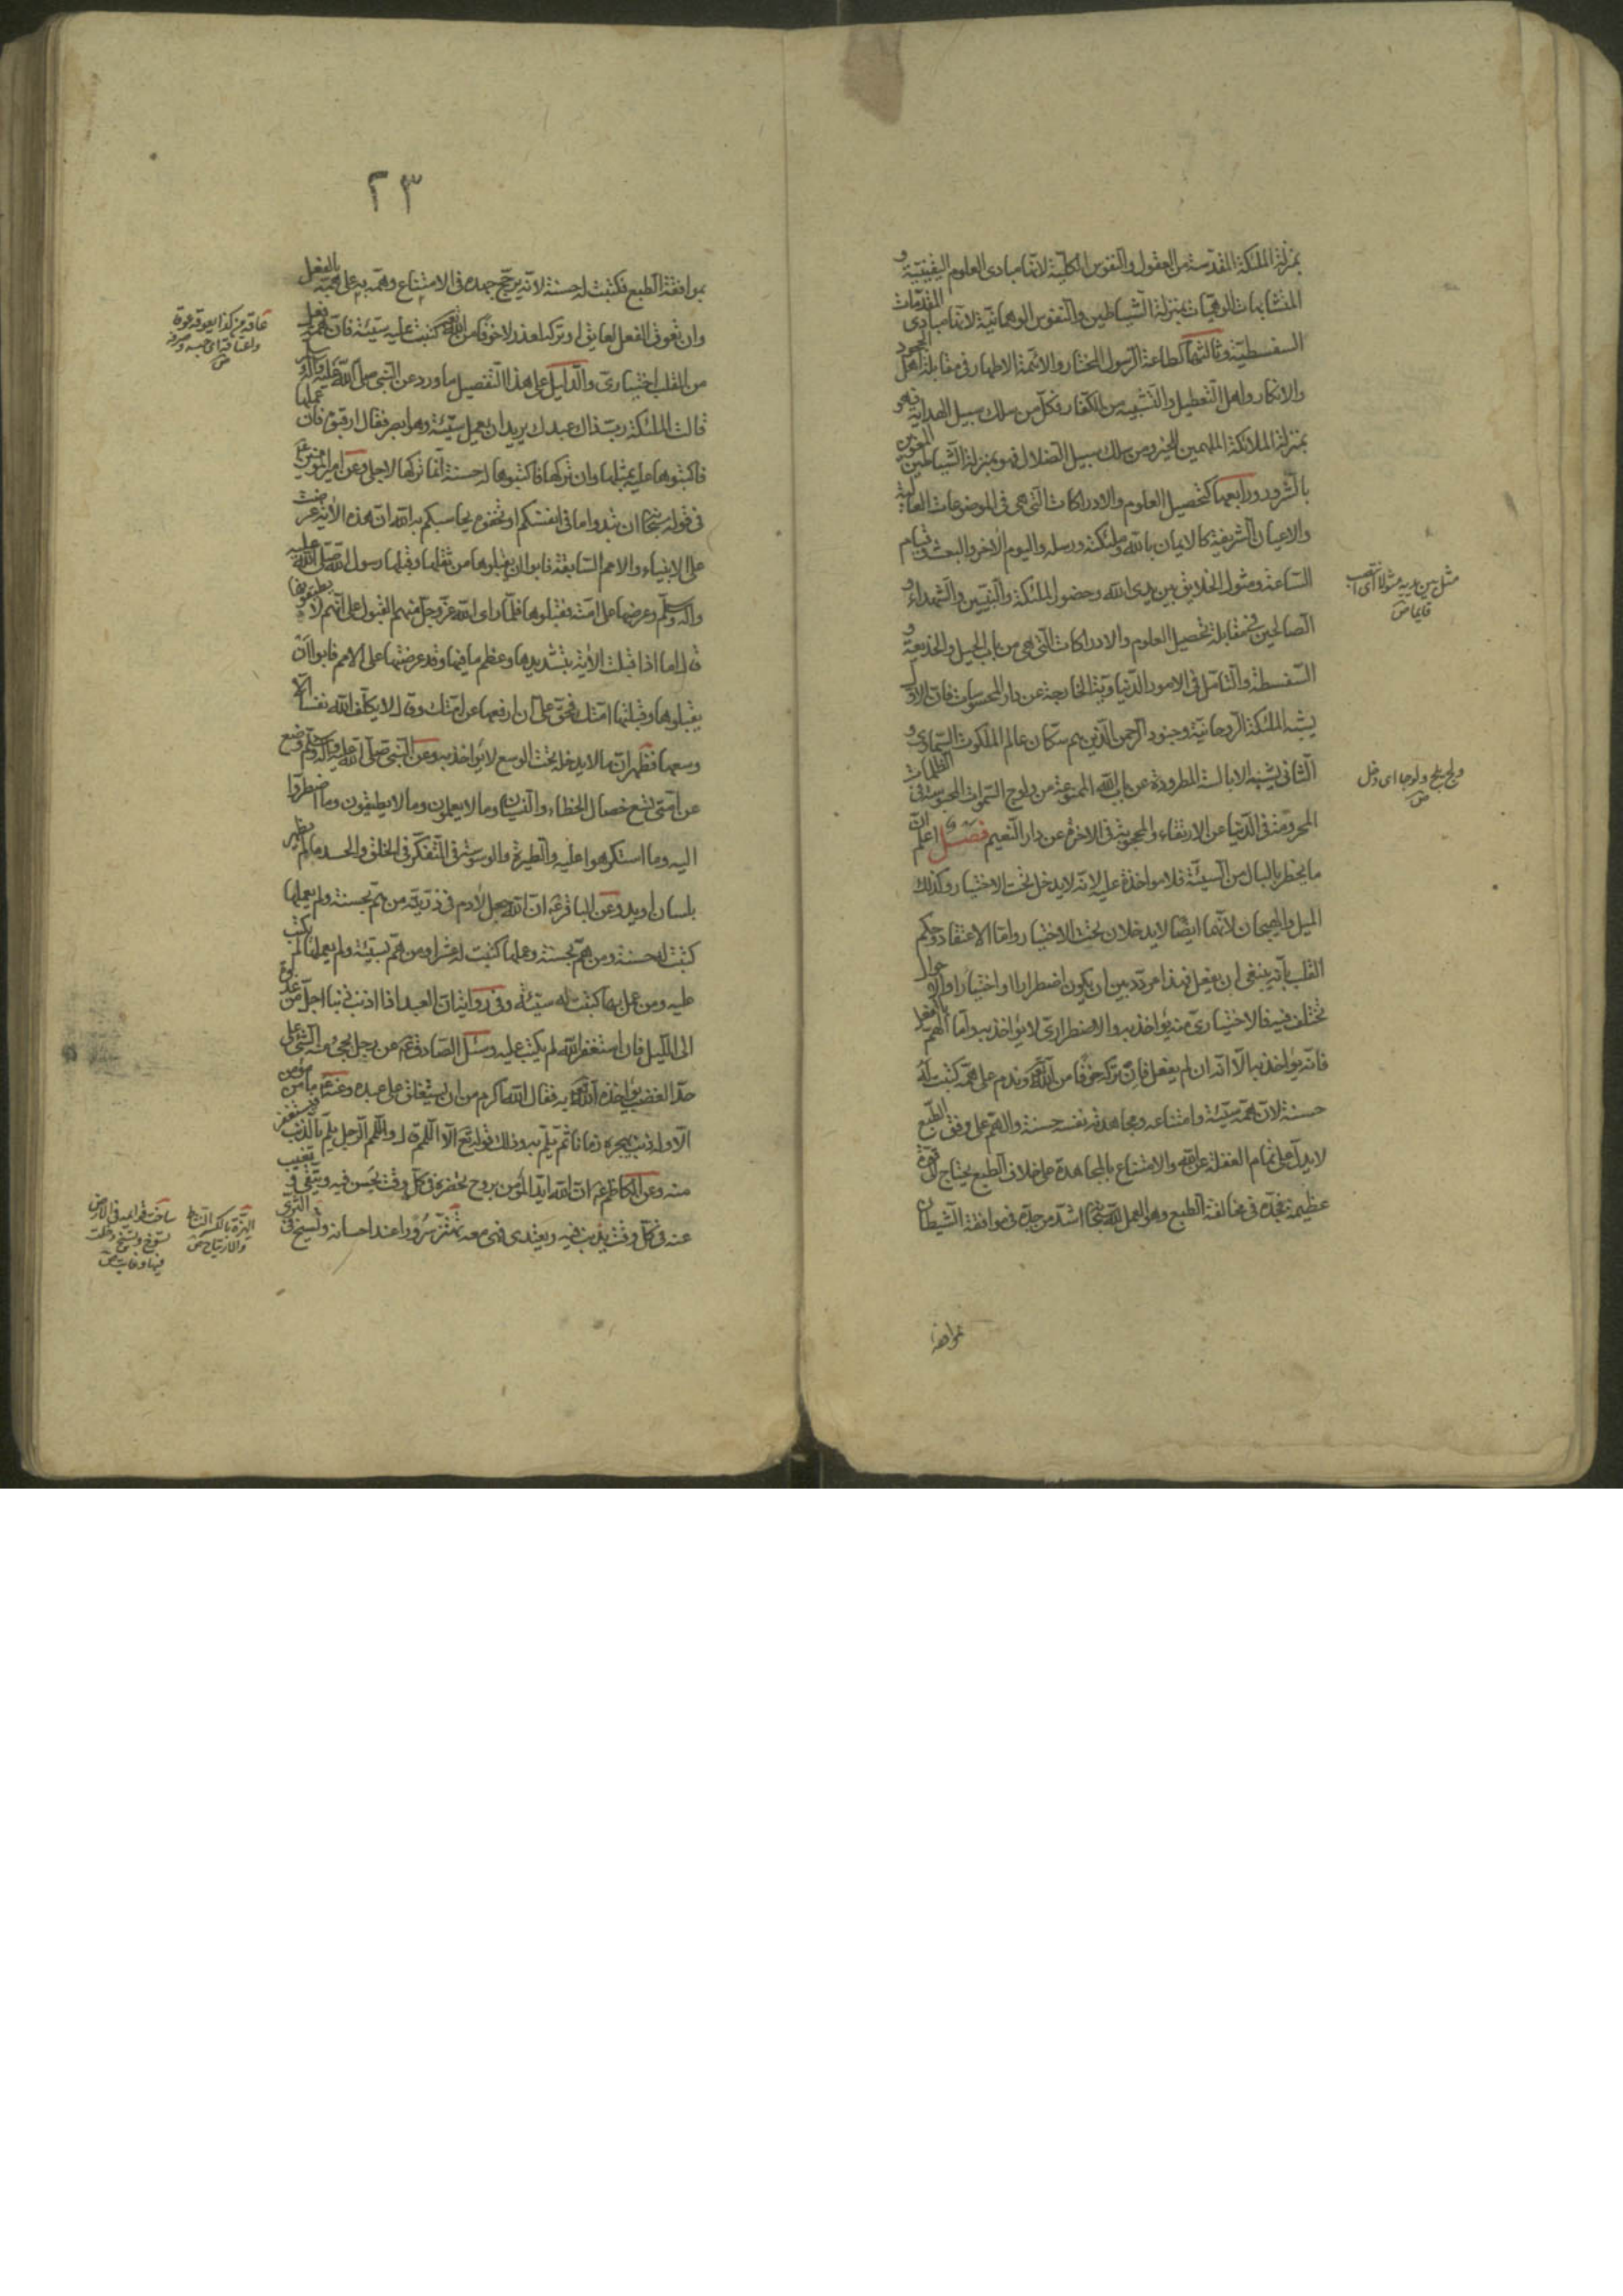 بمنزلة الملئكة المقدّسة من العقول والنفوس الكلّية لانّها مبادى العلوم اليقينيّة و
المتشابهات الوهميّات بمنزلة الشياطين والنفوس الوهمانيّة لانّها مبادى المقدّمات
السفسطيّة وثالثها كطاعة الرسول المختار والائمة الاطهار فى مقابلة اهل الجحود
والانكار واهل التعطيل والتشبيه من الكفار فكلّ من سلك سبيل الهداية فهو
بمنزلة الملائكة الملهمين للخير ومن سلك سبيل الضلال فهو بمنزلة الشياطين المغوين
بالشرور ورابعها كتحصيل العلوم والادراكات التى هى فى الموضوعات العالية
والاعيان الشريفة كالايمان بالله وملئكته ورسله واليوم الاخر والبعث وقيام
الساعة ومثول الخلايق بين يدى الله وحضور الملئكة والنبيّين والشهداء و
الصالحين فى مقابلة تحصيل العلوم والادراكات التى هى من باب الحيل والخديعة و
السفسطة والتأمل فى الامور الدنياوية الخارجة عن دار المحسوسات فان الاوّل
يشبه الملئكة الروحانية وجنود الرحمن الذين هم سكان عالم الملكوت السماوى و
الثانى يشبه الابالسة المطرودة عن باب الله الممنوعة من ولوج السموات المحبوسة فى الظلمات
المحرومة فى الدنيا عن الارتقاء والمحجوبة فى الاخرة عن دار النعيم فصل اعلم ان
ما يخطر بالبال من السيئة فلا مواخذة عليه لانه لا يدخل تحت الاختيار وكذلك
الميل والهيجان لانهما ايضا لا يدخلان تحت الاختيار واما الاعتقاد وحكم
القلب بأنه ينبغى ان يفعل فهذا مردّد بين ان يكون اضطرارا او اختيارا والاحوال
تختلف فيه فالاختيارى منه يؤاخذ به والاضطرارى لا يؤاخذ به واما الهمّ بالفعل
فانه يؤاخذ به الا انه ان لم يفعل فان تركه خوفا من الله تعالى وندم على همّه كتبت له
حسنة لان همّه سيّئة وامتناعه ومجاهدته نفسه حسنة والهمّ على وفق الطبع
لا يدلّ على تمام الغفلة عن الله والامتناع بالمجاهدة على خلاف الطبع يحتاج الى قوّة
عظيمة فجدّه فى مخالفة الطبع وهو العمل لله تعالى اشدّ من جدّه فى موافقة الشيطان
بموافقة
مثل بين يديه مثولا اى انتصب
قايما ص
ولج يلج ولوجا اى دخل
ص
٢٣
بموافقة الطبع فكتبت له حسنة لانه يرجّح جهده فى الامتناع وهمّه به على همّه بالفعل
وان تعوق الفعل لعايق او تركه لعذر لا خوفا من الله تعالى كتبت عليه سيّئة فان همّه فعل
من القلب اختيارىّ والدليل على هذا التفصيل ما ورد عن النبى صلى الله عليه وآله وسلم
قالت الملئكة ربّ ذاك عبدك يريد ان يعمل سيّئة وهو ابصر فقال ارقبوه فان عملها
فاكتبوها عليه بمثلها وان تركها فاكتبوها له حسنة انما تركها لاجلى وعن امير المؤمنين ع
فى قوله سبحانه ان تبدوا ما فى انفسكم او تخفوه يحاسبكم به الله ان هذه الاية عرضت
على الانبياء والامم السابقة فابوا ان يقبلوها من ثقلها وقبلها رسول الله صلى الله عليه
وآله وسلم وعرضها على امته فقبلوها فلما راى الله عز وجل منهم القبول على انهم لا يطيقونها
قال اما اذا قبلت الاية بتشديدها وعظم ما فيها وقد عرضتها على الامم فابوا ان
يقبلوها وقبلتها امتك فحقّ علىّ ان ارفعها عن امتك وقال لا يكلف الله نفسا الا
وسعها فظهر ان ما لا يدخل تحت الوسع لا يؤاخذ به وعن النبى صلى الله عليه وآله وسلم وضع
عن امتى تسع خصال الخطاء والنسيان وما لا يعلمون وما لا يطيقون وما اضطروا
اليه وما استكرهوا عليه والطيرة والوسوسة فى التفكر فى الخلق والحسد ما لم يظهر
بلسان او يد وعن الباقر ع ان الله جعل لادم فى ذريّته من همّ بحسنة ولم يعملها
كتبت له حسنة ومن همّ بحسنة وعملها كتبت له عشرا ومن همّ بسيّئة ولم يعملها لم يكتب
عليه ومن عمل بها كتبت له سيّئة وفى رواية ان العبد اذا اذنب ذنبا اجل من غدوة
الى الليل فان استغفر الله لم يكتب عليه وسئل الصادق ع عن رجل يجىء منه الشىء على
حدّ الغضب يؤاخذه الله تعالى به فقال الله اكرم من ان يستغلق على عبده وعنه ع ما من مؤمن
الا وله ذنب يهجره زمانا ثم يلمّ به وذلك قوله تع الا اللمم قال واللمم الرجل يلمّ بالذنب فيستغفر
منه وعن الكاظم ع ان الله ايّد المؤمن بروح تحضره فى كل وقت يحسن فيه ويتّقى وتغيب
عنه فى كل وقت يذنب فيه ويعتدى فهى معه تهتزّ سرورا عند احسانه وتسيخ فى الثرى
عاقه عن كذا يعوقه عوقا
واعتاقه اى حبسه وصرفه
ص
الهزّة بالكسر النشاط
والارتياح ص
ساخت قوايمه فى الارض
تسوخ وتسيخ دخلت
فيها وغابت ص